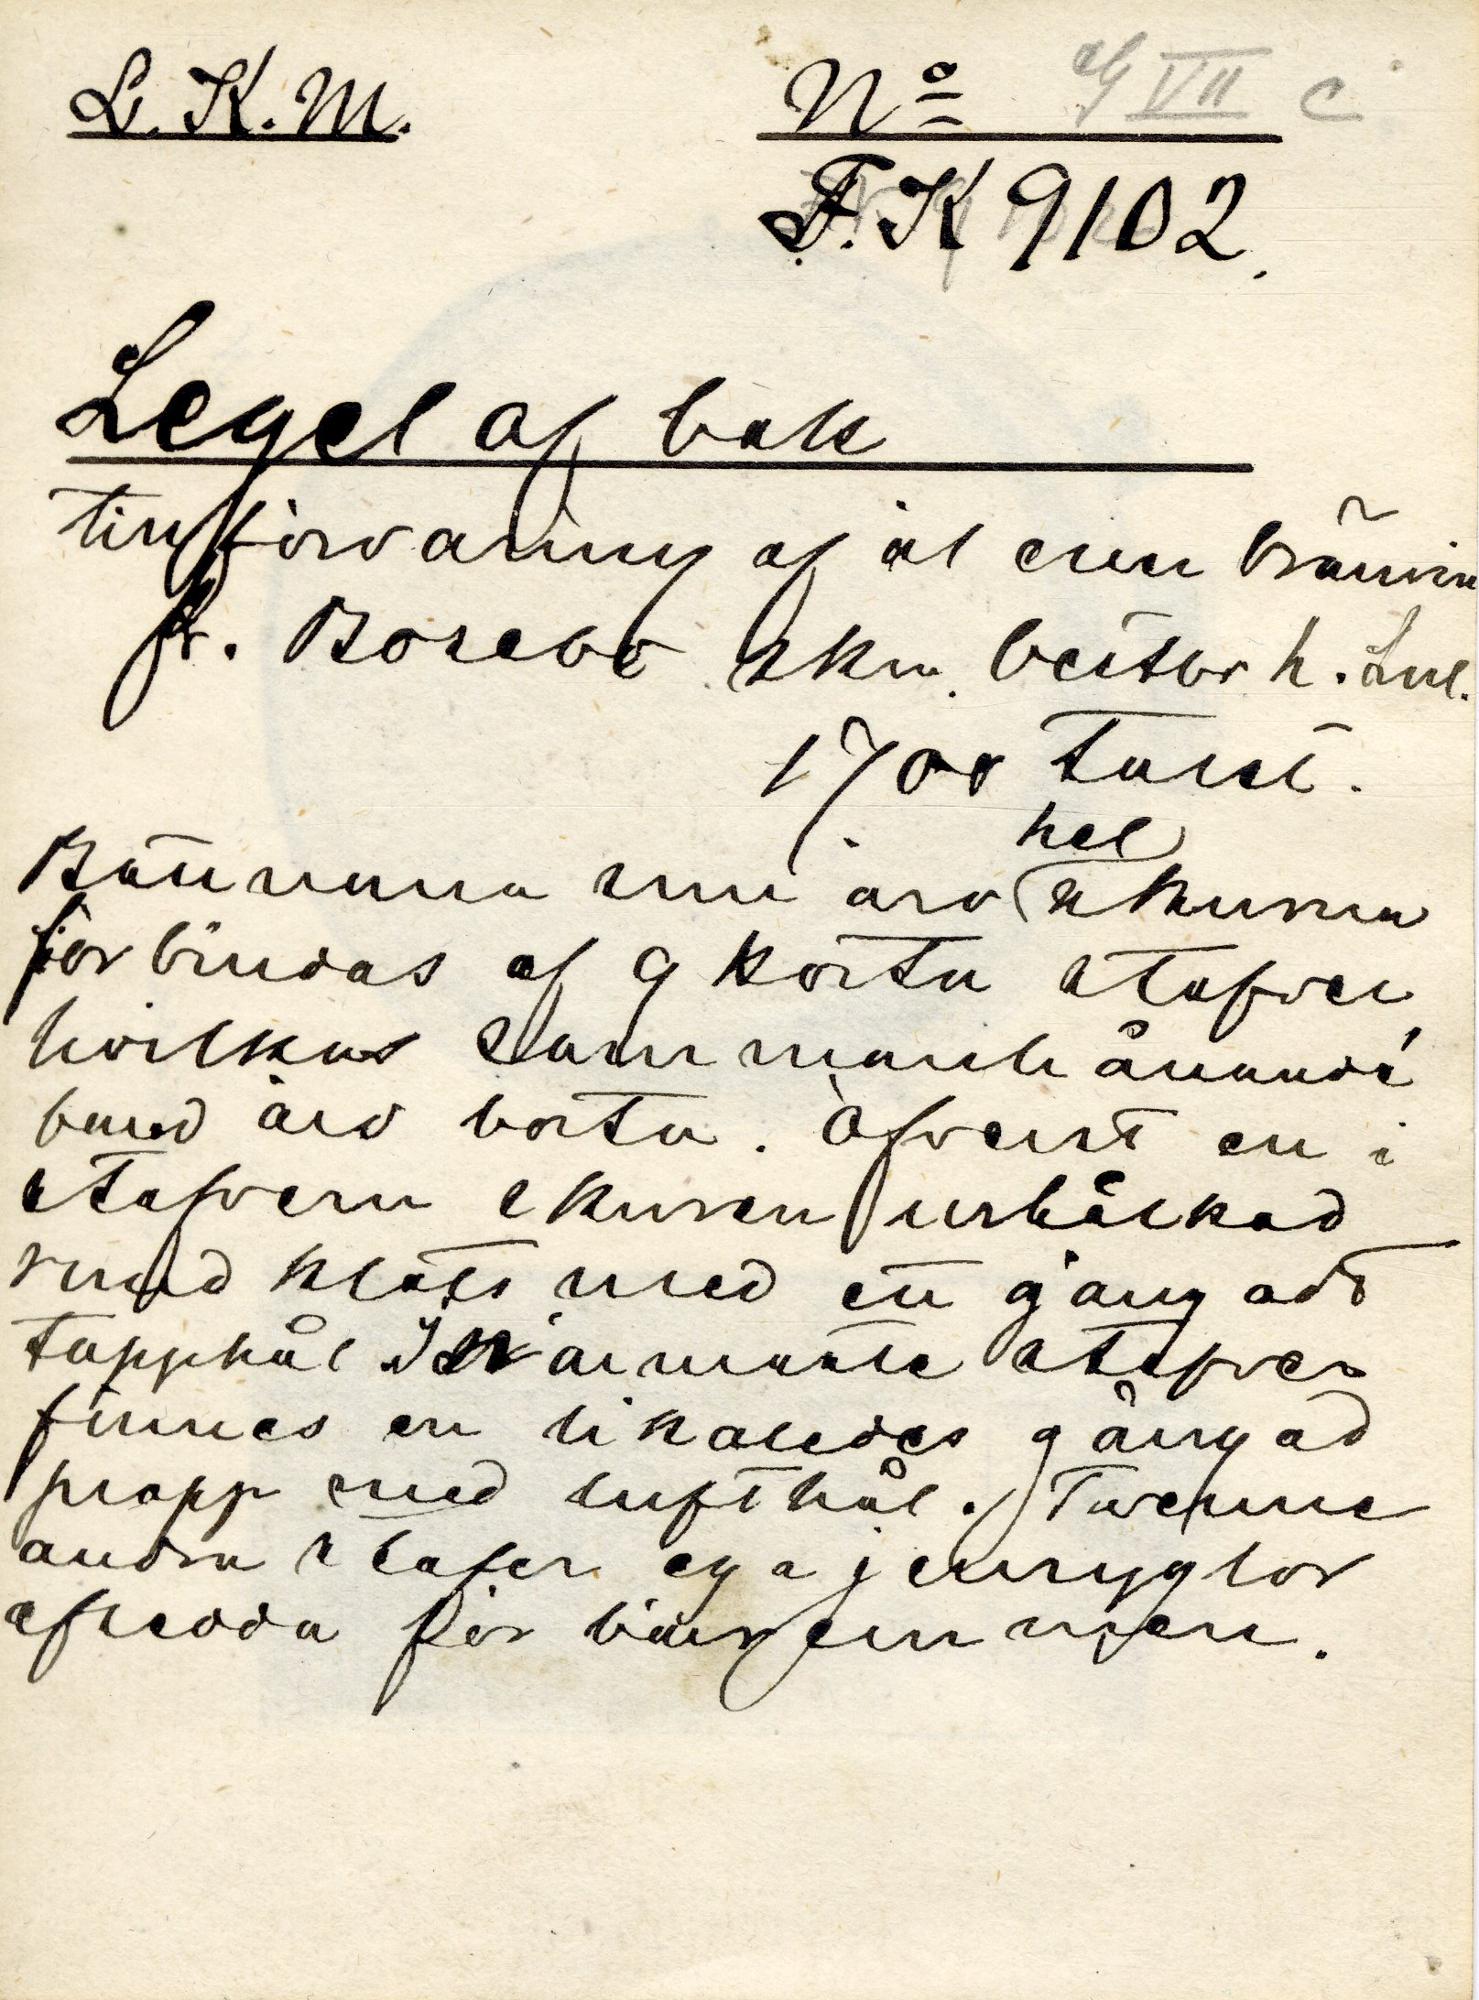 L. K. M.
No VII c
F. K 9102.
Legel af bok
till förvaring af öl eller bränvin
fr. Bosebo skn. Vestbo h. Sml.
1700 talet.
Bottnarna som äro hel skurna
förbindas af 9 korta stafver
hvilkas sammanhållande
band äro borta. Öfverst en i
stafvern skuren urhålkad
rund klots med ett gängadt
tapphål I närmaste stafver
finnes en likaledes gängad
propp med lufthål. Tvenne
andra stafver ega jernöglor
afsedda för bärremmen.